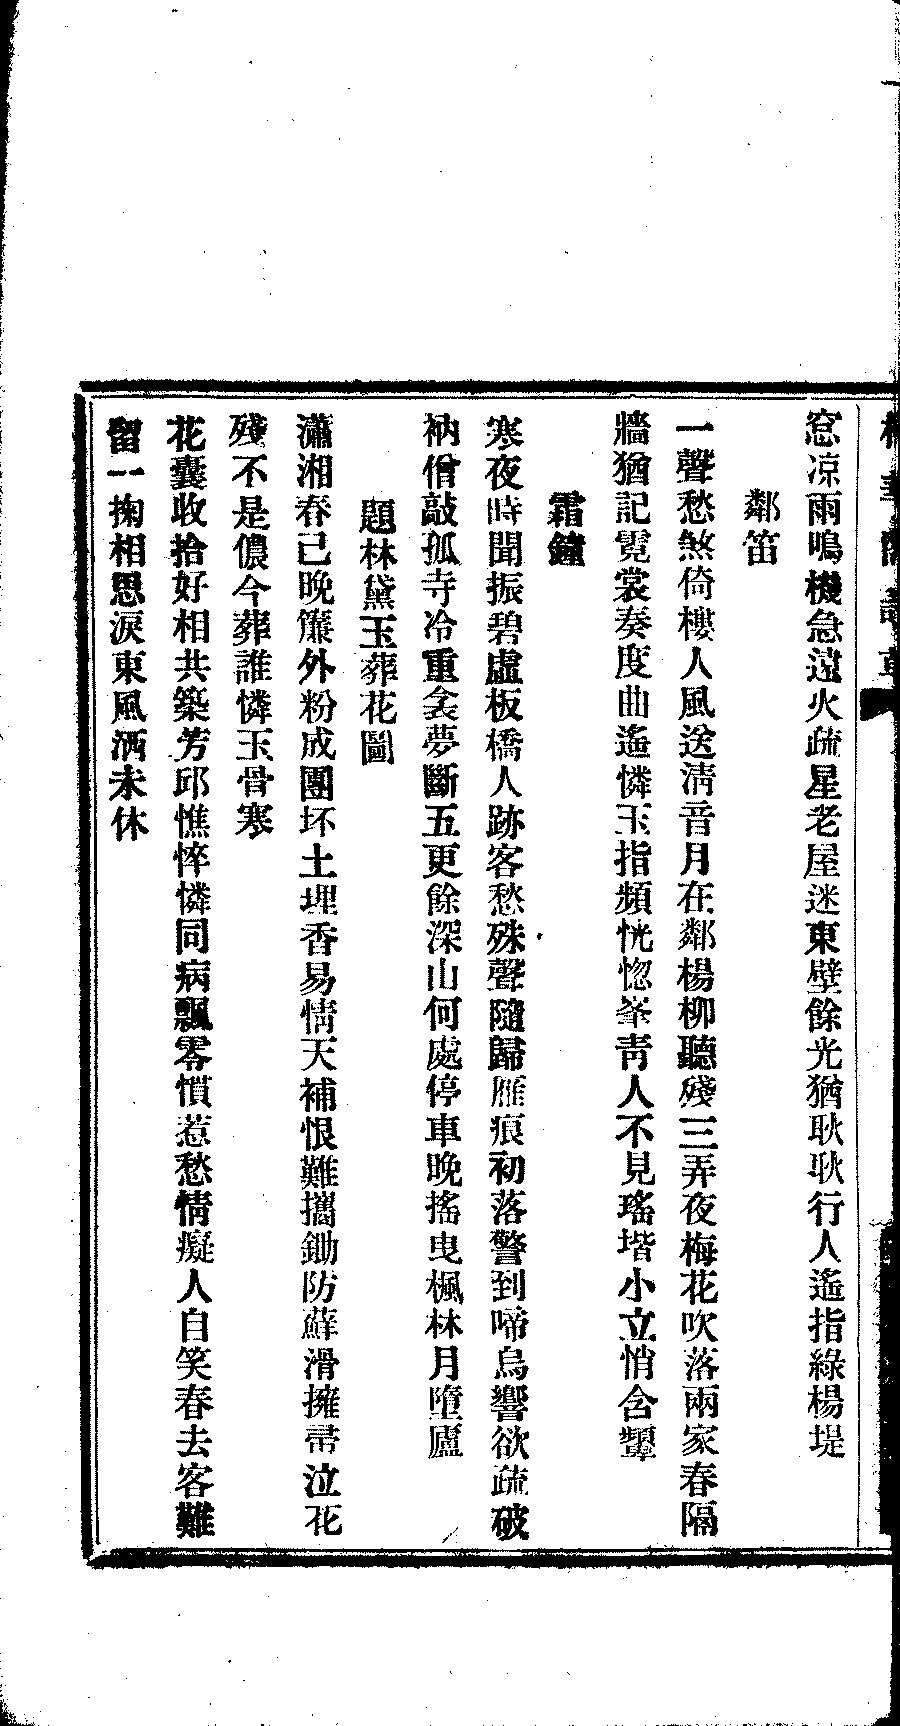 窓凉雨鳴機急遠火疏星老屋迷東壁餘光猶耿耿行人遙指綠楊堤
鄰笛
一聲愁煞倚樓人風送淸音月在鄰楊柳聽殘三弄夜梅花吹落兩家春隔
牆猶記霓裳奏度曲遙憐玉指頻恍惚峯靑人不見瑤堦小立悄含顰
霜鐘
寒夜時聞振碧虛板橋人跡客愁殊聲隨歸雁痕初落警到啼烏響欲疏破
衲僧敲孤寺冷重衾夢斷五更餘深山何處停車晚搖曳楓林月墮廬
題林黛玉葬花圖
瀟湘春已晚簾外粉成團坏土埋香易情天補恨難攜鋤防蘚滑擁帚泣花
殘不是儂今葬誰憐玉骨寒
花囊收拾好相共築芳邱憔悴憐同病飄零慣惹愁情癡人自笑春去客難
留一掬相思淚東風洒未休